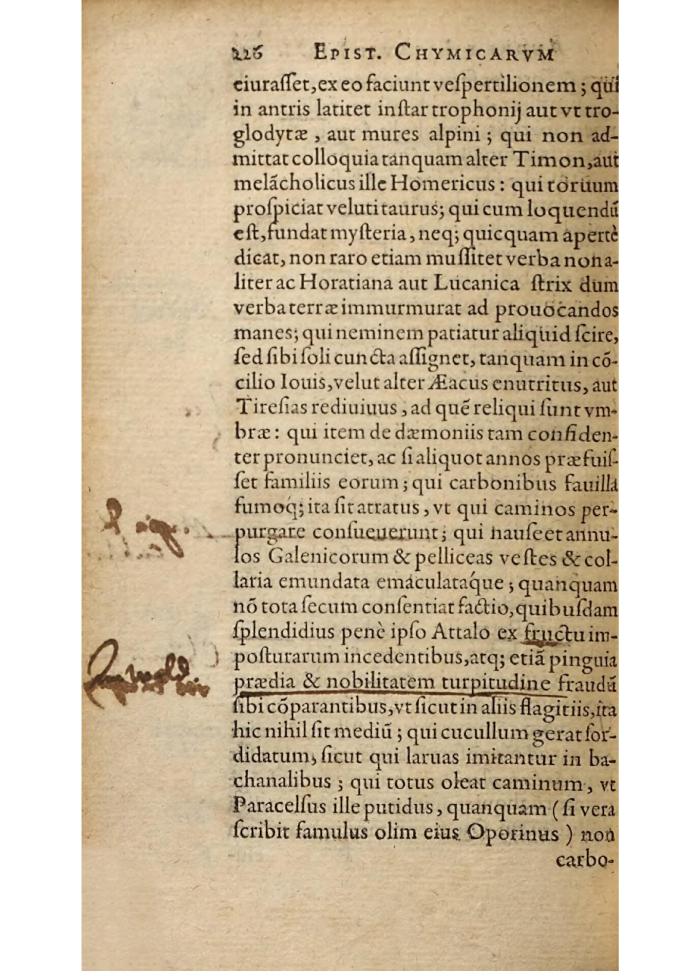 226 EPIST. CHYMICARVM
eiuraſſet, ex eo faciunt veſpertilionem; qui
in antris latitet inſtar trophonij aut vt tro-
glodytæ, aut mures alpini; qui non ad-
mittat colloquia tanquam alter Timon, aut
melācholicus ille Homericus: qui toruum
proſpiciat veluti taurus; qui cum loquendū
eſt, fundat myſteria, neq; quicquam apertè
dicat, non raro etiam muſſitet verba non a-
liter ac Horatiana aut Lucanica ſtrix dum
verba terræ immurmurat ad prouocandos
manes; qui neminem patiatur aliquid ſcire,
ſed ſibi ſoli cuncta aſſignet, tanquam in cō-
cilio Iouis, velut alter Æacus enutritus, aut
Tireſias rediuiuus, ad quē reliqui ſunt vm-
bræ: qui item de dæmoniis tam confiden-
ter pronunciet, ac ſi aliquot annos præfuiſ-
ſet familiis eorum; qui carbonibus fauilla
fumoq; ita ſit atratus, vt qui caminos per-
purgare conſueuerunt; qui nauſeet annu-
los Galenicorum & pelliceas veſtes & col-
laria emundata emaculataque; quanquam
nō tota ſecum conſentiat factio, quibuſdam
ſplendidius penè ipſo Attalo ex fructu im-
poſturarum incedentibus, atq; etiā pinguia
prædia & nobilitatem turpitudine fraudū
ſibi cōparantibus, vt ſicut in aliis flagitiis, ita
hic nihil ſit mediū; qui cucullum gerat ſor-
didatum, ſicut qui laruas imitantur in ba-
chanalibus; qui totus oleat caminum, vt
Paracelſus ille putidus, quanquam (ſi vera
ſcribit famulus olim eius Oporinus) non
carbo-